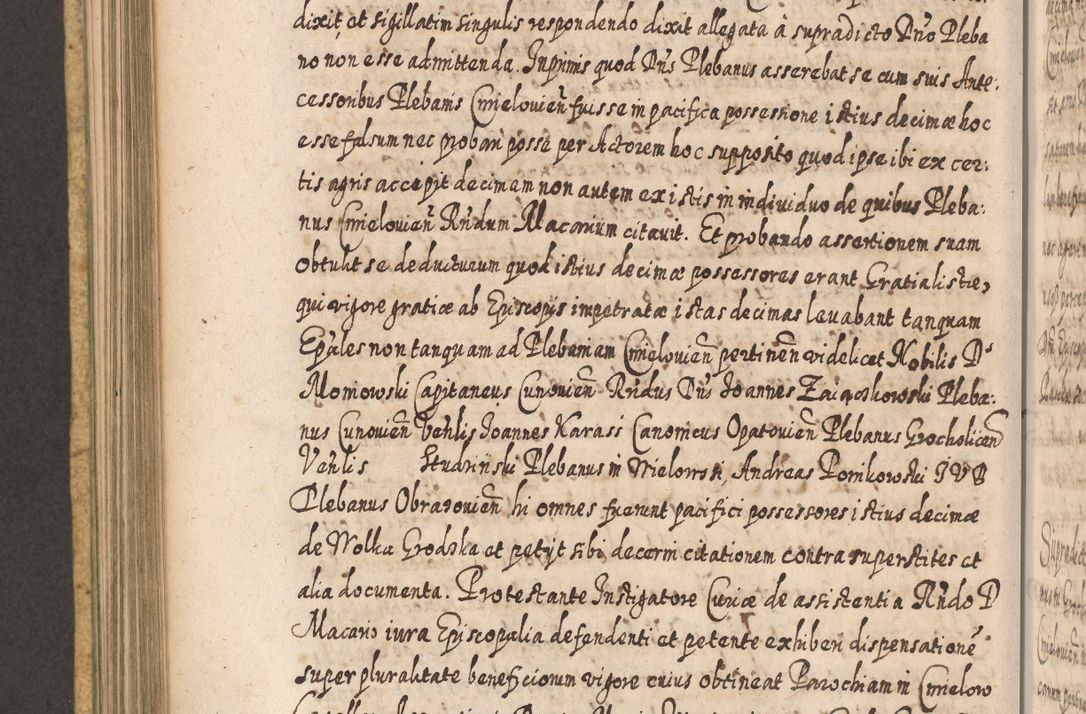 dixit, et sigillatim singulis respondendo dixit allegata à supradicto Dño Pleba
no non esse admittenda. Inprimis quod Dñs Plebanus asserebat se cum suis Ante:
cessoribus Plebanis Cmielovień fuisse in pacifica possessione istius decimæ hoc
esse falsum nec probari posse per Actorem hoc supposito quod ipse ibi ex cer:
tis agris accepit decimam non autem ex istis in individuo de quibus Pleba:
nus Cmielovień Rńdum Macarium citavit. Et probando assertionem suam
obtulit se deducturum quod istius decimæ possessores erant Gratialistæ,
qui vigore gratiæ ab Episcopis impetratæ istas decimas levabant tanquam
Epales non tanquam ad Plebaniam Cmielovień pertinen videlicet Nobilis D
Moniowski Capitaneus Cunovień Rńdus Dńs Joannes Zaiączkowski Pleba:
nus Cunovień Venlis Joannes Karass Canonicus Opatovień Plebanus Grocholicen
Venlis Studzinski Plebanus in Mielowsi, Andreas Ponikowski JVD
Plebanus Obrazovień hi omnes fuerunt pacifici possessores istius decimæ
de Wolka Grodzka et petijt sibi decerni citationem contra superstites et
alia documenta. Protestante Instigatore Curiæ de assistentia Rńdo D
Macario iura Episcopalia defendenti et petente exhiberi dispensatione
super pluralitate beneficiorum vigore cuius obtineat Parochiam in Cmielow